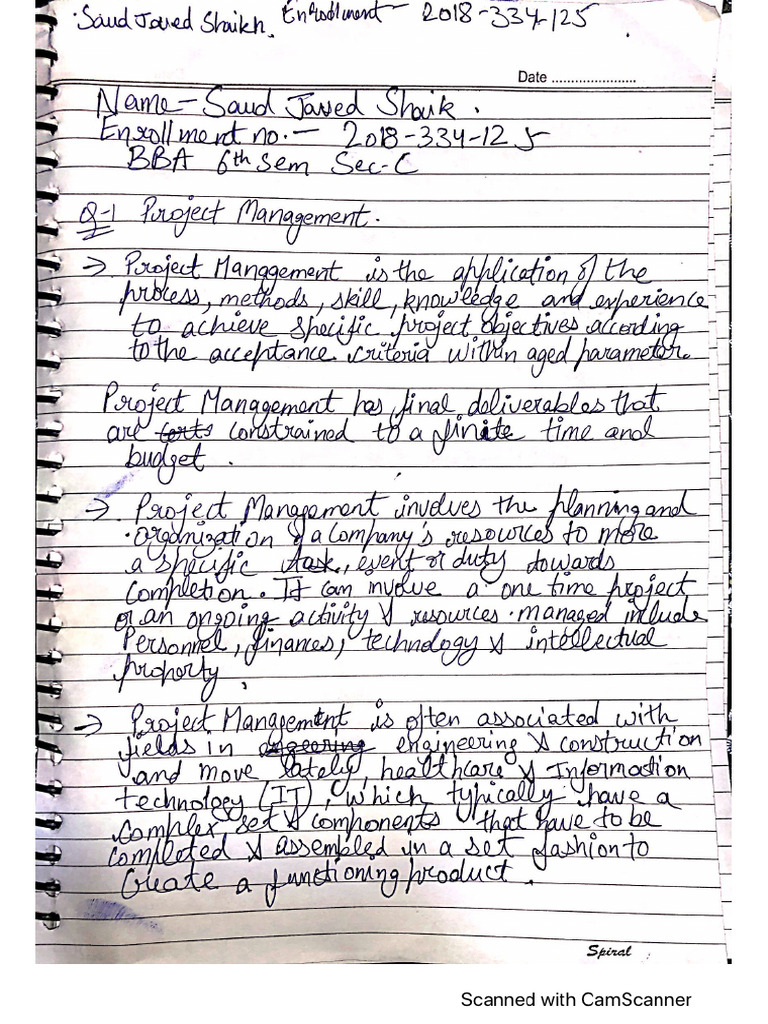 Saud Javed Shaikh. Enrollment - 2018-334-125
Date ......................
Name - Saud Javed Shaik.
Enrollment no. - 2018-334-125
BBA 6th Sem Sec-C
Q-1 Project Management.
→ Project Management is the application of the
process, methods, skill, knowledge and experience
to achieve specific project objectives according
to the acceptance criteria within aged parameter.
Project Management has final deliverables that
are constrained to a finite time and
budget.
→ Project Management involves the planning and
organization & a company's resources to more
a specific task, event or duty towards
completion. It can involve a one time project
or an ongoing activity & resources managed include
Personnel, finances, technology & intellectual
property,
→ Project Management is often associated with
fields in engineering & construction
and move lately, healthcare & Information
technology (IT), which typically have a
complex set & components that have to be
completed & assembled in a set fashion to
Create a functioning product.
Spiral
Scanned with CamScanner